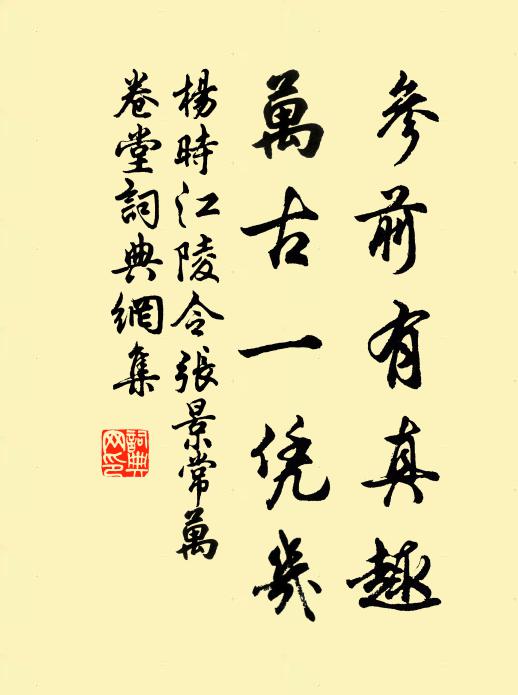 參前有真趣
萬古一凭几
楊時江陵令張景常萬
卷堂詞典網集
詞典
网印